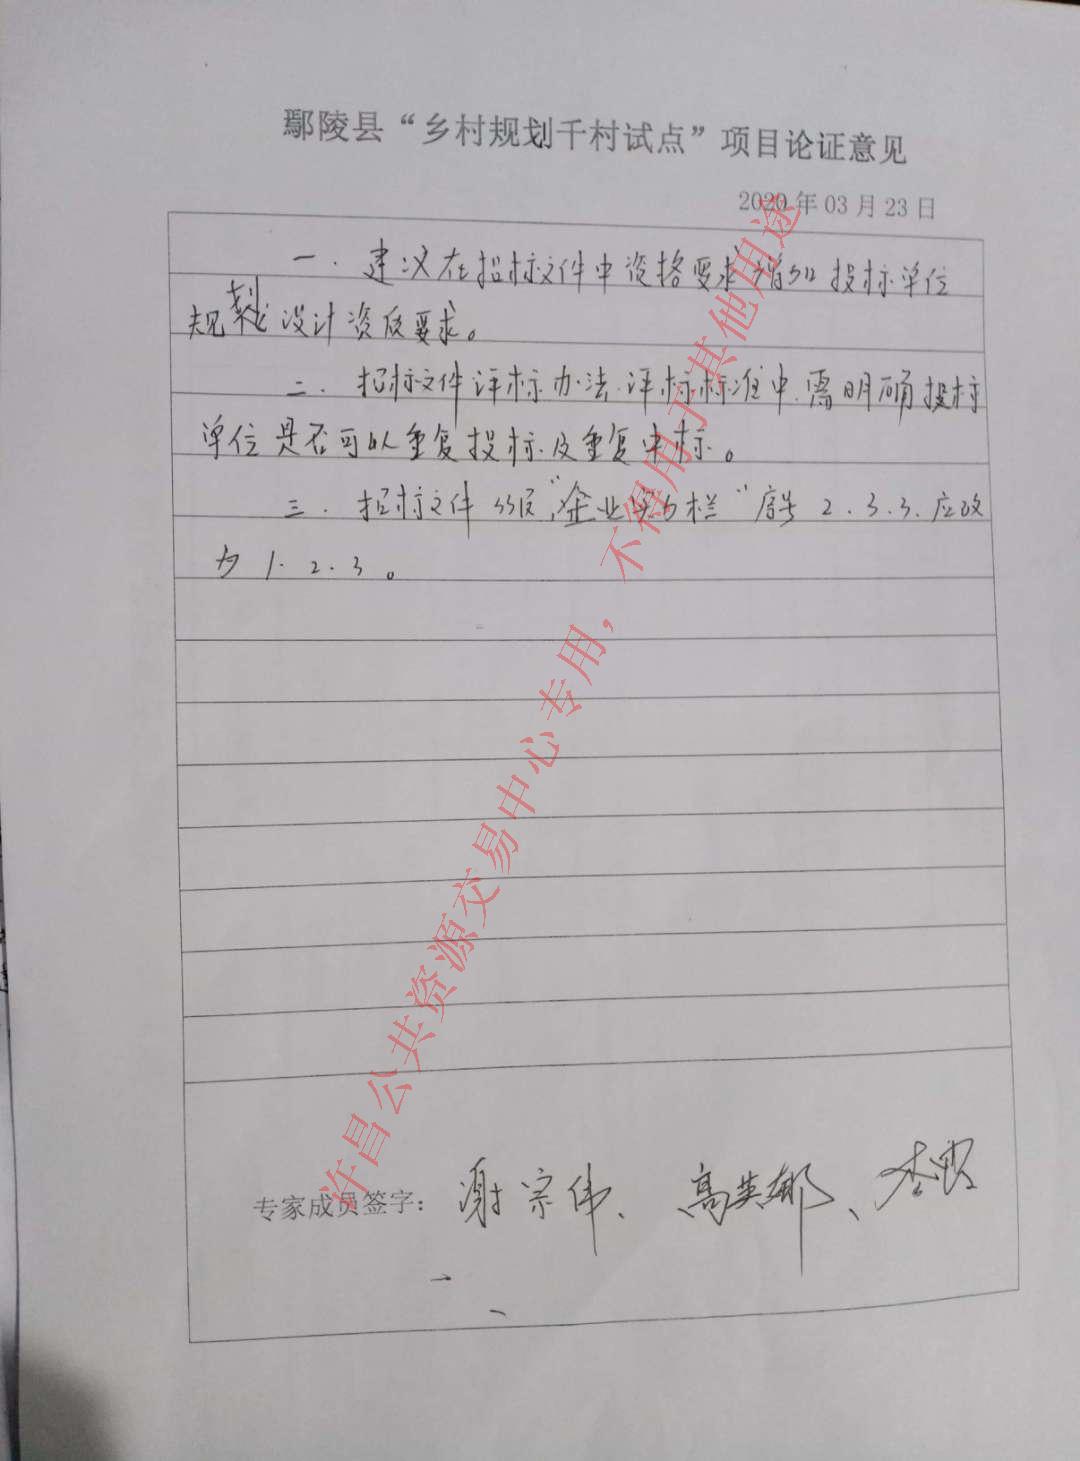 鄢陵县“乡村规划千村试点”项目论证意见
2020年03月23日
一. 建议在招标文件中资格要求增加投标单位
规划设计资质要求。
二. 招标文件评标办法.评标标准中.需明确投标
单位是否可以重复投标.及重复中标。
三. 招标文件 55页,“企业业绩栏”序号 2.3.3.应改
为 1.2.3。
专家成员签字: 谢宗伟、高英郁、李
许昌公共资源交易中心专用，不得用于其他用途